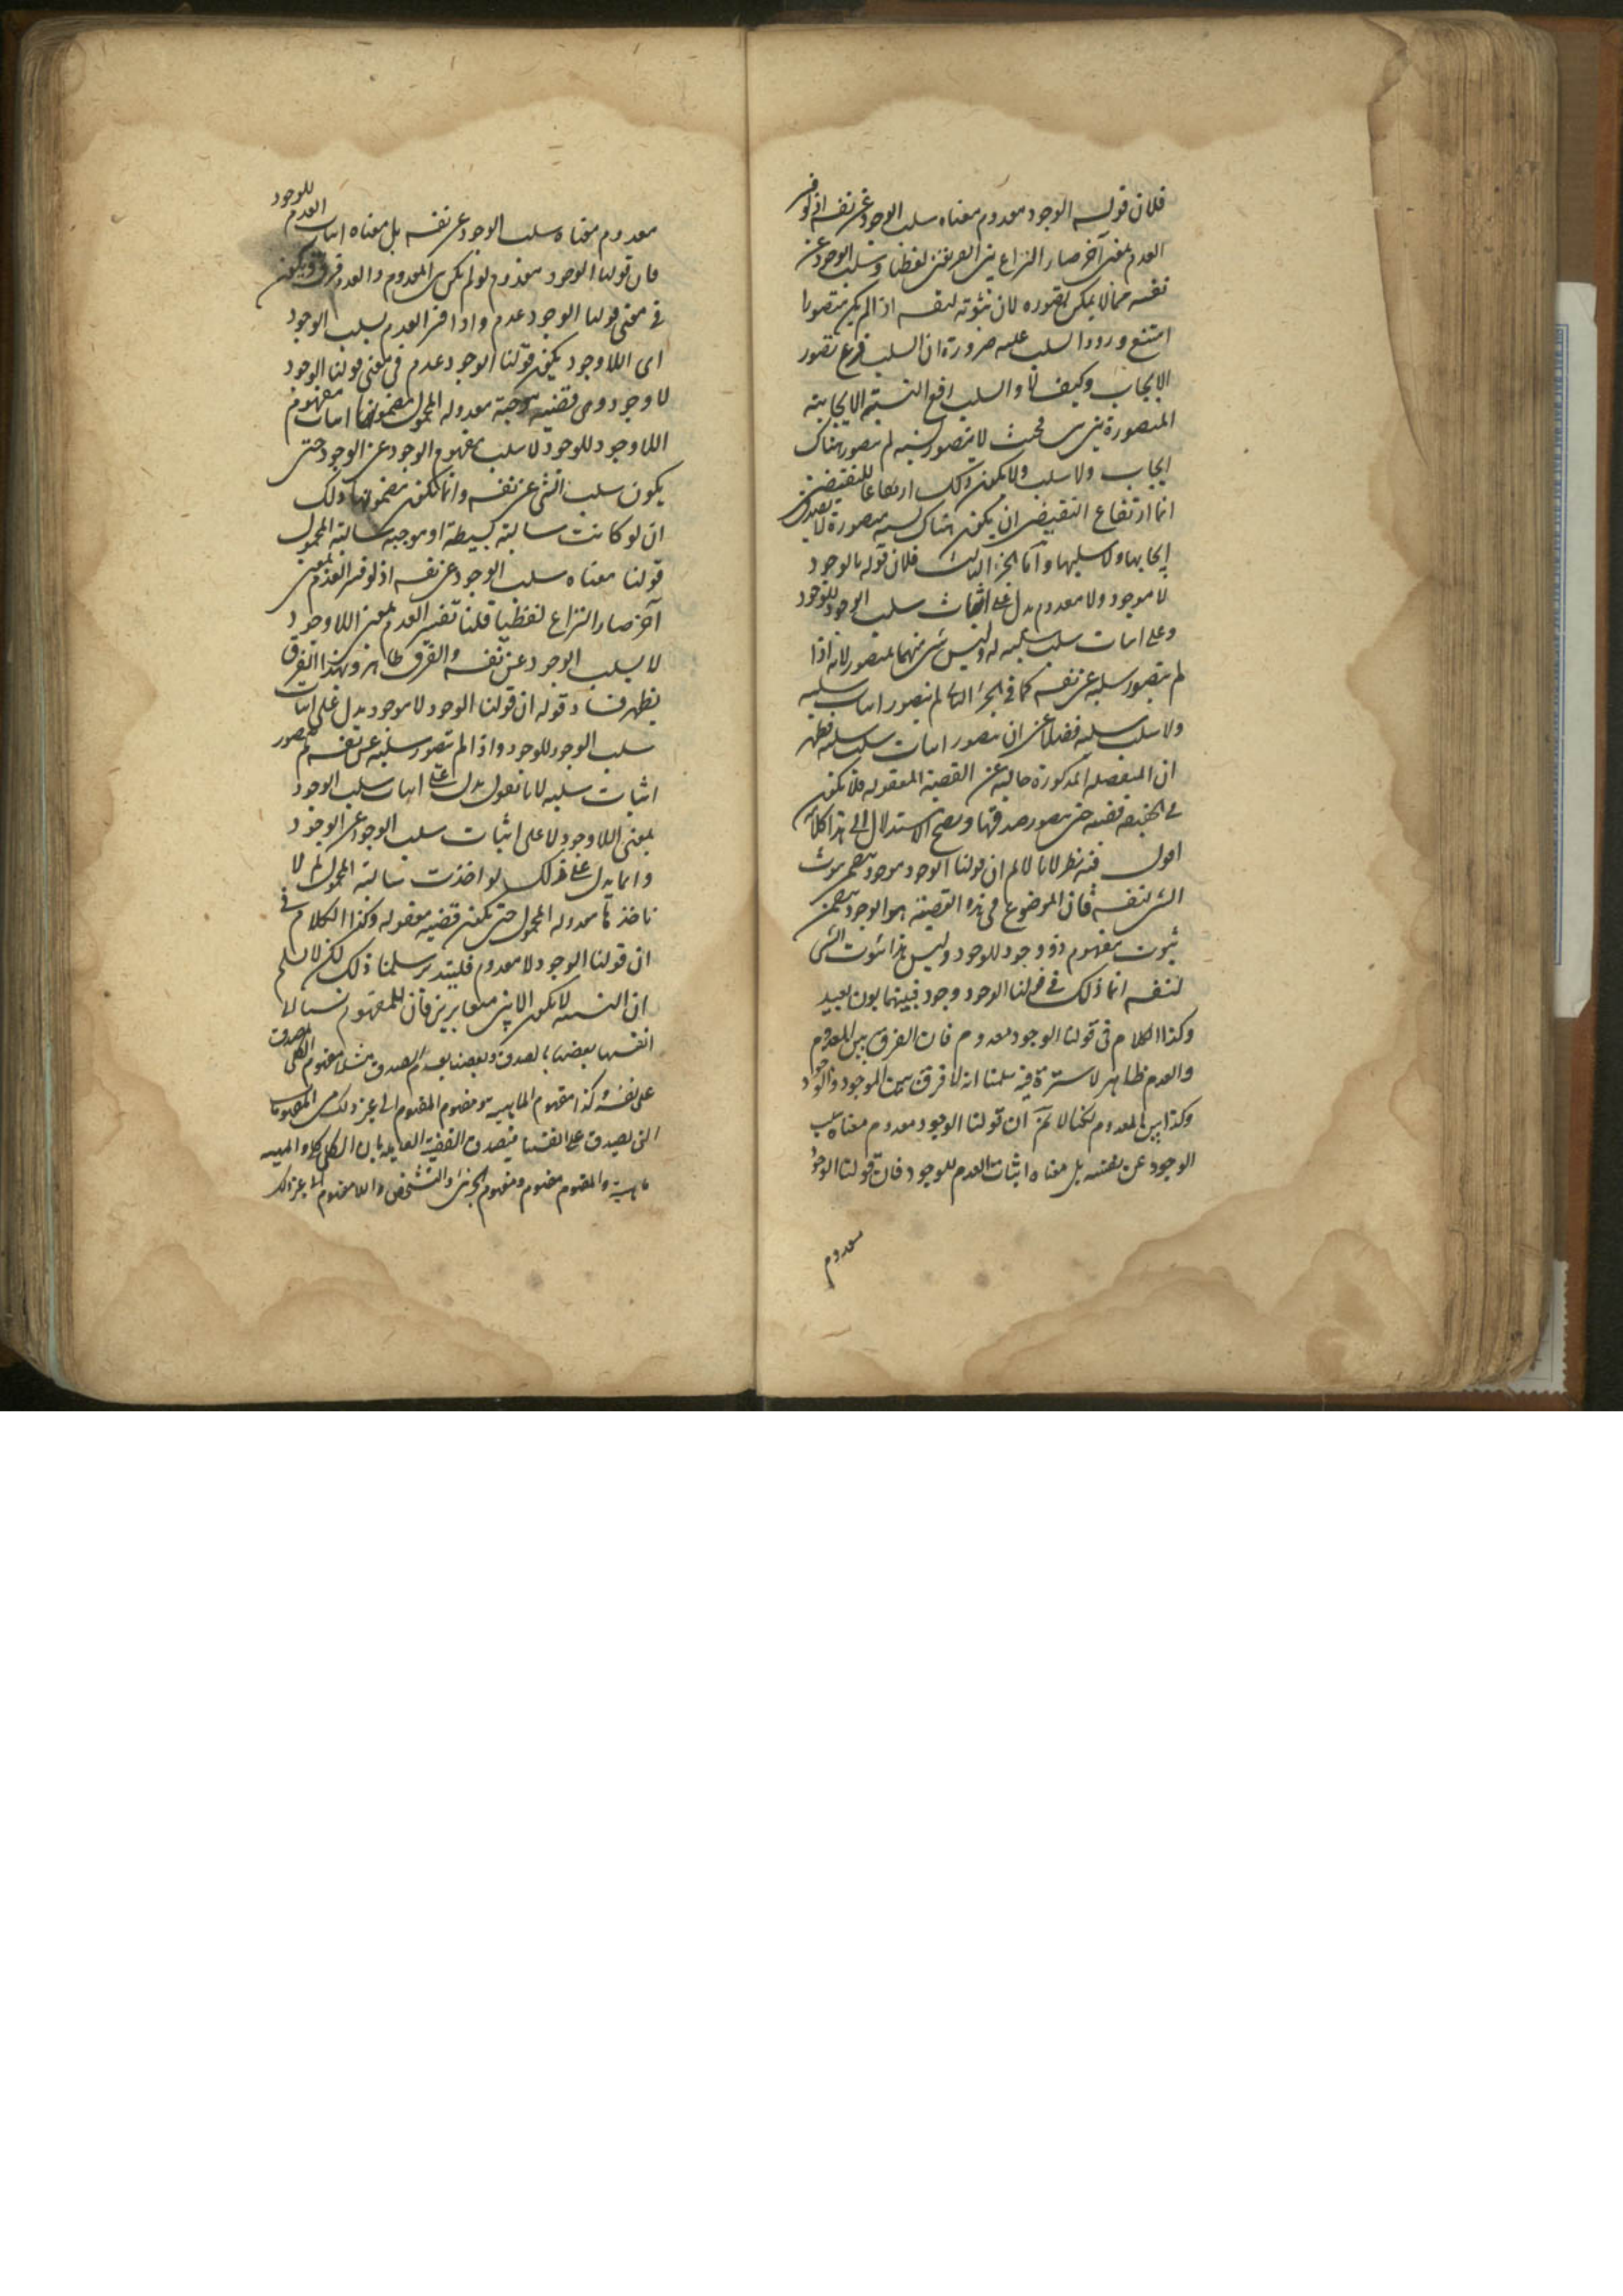 فلان قوله الوجود معدوم معناه سلب الوجود عن نفسه اذ لو فسر
العدم بمعنى آخر صار النزاع بين الفريقين لفظيا وسلب الوجود عن
نفسه مما لا يمكن تصوره لان ثبوته لنفسه اذا لم يكن متصورا
امتنع ورود السلب عليه ضرورة ان السلب فرع تصور
الايجاب وكيف لا والسلب رفع النسبة الايجابية
المتصورة بين بين فحيث لا يتصور نسبة لم يتصور هناك
ايجاب ولا سلب ولا يكون ذلك ارتفاعا للنقيضين
انما ارتفاع النقيضين ان يكون هناك نسبة متصورة لا يصدق
ايجابها ولا سلبها واما الجزء الثالث فلان قوله الوجود
لا موجود ولا معدوم يدل على اثبات سلب الوجود للوجود
وعلى اثبات سلب سلبه له وليس شئ منهما بمتصور لانه اذا
لم يتصور سلبه عن نفسه كما في الجزء الثانى لم يتصور اثبات سلبه
ولا سلب سلبه فضلا عن ان يتصور اثبات سلب سلبه فظهر
ان المنفصلة المذكورة خالية عن القضية المعقولة فلا يكون
في الحقيقة قضية حتى يتصور صدقها ويصح الاستدلال الى هذا كلامه
اقول فيه نظر لانا لا نم ان قولنا الوجود موجود يتضمن ثبوت
الشئ لنفسه فان الموضوع في هذه القضية هو الوجود يتضمن
ثبوت مفهوم ذو وجود للوجود وليس هذا ثبوت الشئ
لنفسه انما ذلك في قولنا الوجود وجود فبينهما بون بعيد
وكذا الكلام في قولنا الوجود معدوم فان الفرق بين المعدوم
والعدم ظاهر لا سترة فيه سلمنا انه لا فرق بين الموجود والوجود
وكذا بين المعدوم لكنا لا نم ان قولنا الوجود معدوم معناه سلب
الوجود عن نفسه بل معناه اثبات العدم للوجود فان قولنا الوجود
معدوم
معدوم معناه سلب الوجود عن نفسه بل معناه اثبات العدم للوجود
فان قولنا الوجود معدوم لو لم يكن بين المعدوم والعدم فرق ويكون
في معنى قولنا الوجود عدم واذا فسر العدم بسلب الوجود
اى اللاوجود يكون قولنا الوجود عدم في معنى قولنا الوجود
لا وجود وهى قضية موجبة معدولة المحمول مضمونها اثبات مفهوم
اللاوجود للوجود لا سلب مفهوم الوجود عن الوجود حتى
يكون سلب الشئ عن نفسه وانما يكون مضمونها ذلك
ان لو كانت سالبة بسيطة او موجبة سالبة المحمول
قولنا معناه سلب الوجود عن نفسه اذ لو فسر العدم بمعنى
آخر صار النزاع لفظيا قلنا تفسير العدم بمعنى اللاوجود
لا بسلب الوجود عن نفسه والفرق ظاهر وبهذا الفرق
يظهر فساد قوله ان قولنا الوجود لا موجود يدل على اثبات
سلب الوجود للوجود واذا لم يتصور سلبه عن نفسه لم يتصور
اثبات سلبه لانا نقول يدل على اثبات سلب الوجود
بمعنى اللاوجود لا على اثبات سلب الوجود عن الوجود
وانما يدل على ذلك لو اخذت سالبة المحمول لا
ناخذها معدولة المحمول حتى يكون قضية معقولة وكذا الكلام في
ان قولنا الوجود لا معدوم فليتدبر سلمنا ذلك لكن لا نسلم
ان النسبة لا يكون الا بين متغايرين فان للمفهوم نسبا الى
انفسها بعضها بالصدق وبعضها بعدم الصدق مثلا مفهوم الكلى يصدق
على نفسه وكذا مفهوم الماهية ومفهوم المفهوم الى غير ذلك من المفهومات
التى يصدق على انفسها فيصدق القضية القائلة بان الكلى كلى والماهية
ماهية والمفهوم مفهوم ومفهوم الجزئى والتشخص واللامفهوم الى غير ذلك